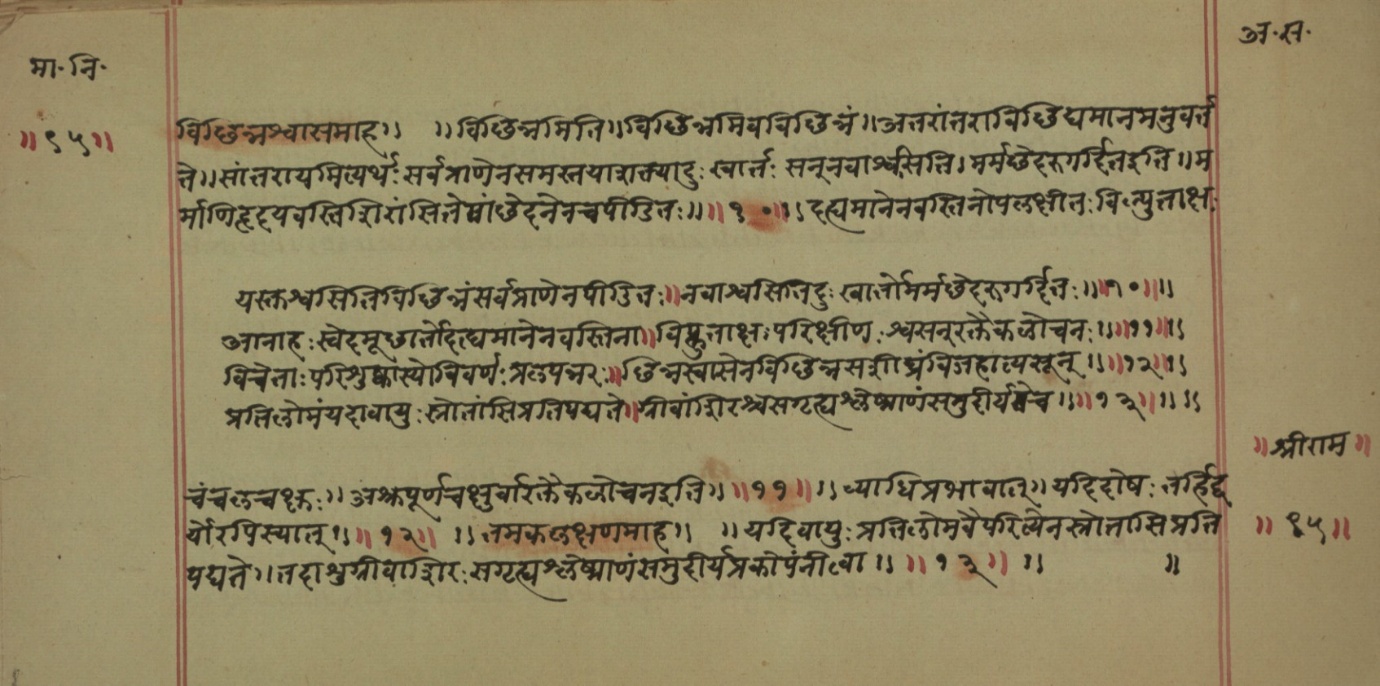 मा·नि·
अ·स·
॥९५॥
विछिन्नश्वासमाह॥ ॥विछिन्नमिति॥विछिन्नमिवविछिन्नं॥अतरांतराविछिद्यमानमनुवर्त्त
ते॥सांतरायमित्यर्थः सर्वप्राणेनसमस्तयाशक्त्यादुःखार्त्तः सन्नवाश्वसिति। मर्मछेदरुगर्द्दितइति॥म
र्माणिहृदयवस्तिशिरांसितेषांछेदनेनचपीडितः॥॥१०॥॥दह्यमानेनवस्तिनोपलक्षीतः विप्लुताक्षः
यस्तश्वसितिविछिन्नंसर्वप्राणेनपीडितः॥नवाश्वसितिदुःखार्तोमर्मछेदरुगर्दितः॥॥१०॥॥
आनाहःस्वेदमूर्छार्तोदह्यमानेनवस्तिना॥विप्लुताक्षः परिक्षीणः श्वसन्रक्तैकलोचनः॥॥११॥॥
विचेताः परिशुष्कास्योविवर्णः प्रलपन्नरः॥छिन्नस्वासेनविछिन्नसशीघ्रंविजहात्यसून्॥॥१२॥॥
प्रतिलोमंयदावायुः स्त्रोतांसिप्रतिपद्यते॥ग्रीवांशिरश्चसगृह्यश्लेष्माणंसमुदीर्यच॥॥१३॥॥॥
॥श्रीराम॥
चंचलचक्षुः॥अश्रुपूर्णचक्षुर्वारक्तैकलोचनइति॥॥११॥॥व्याधिप्रभावात्॥यदिदोषः तर्हिद्व
योरपिस्यात्॥॥१२॥ ॥तमकलक्षणमाह॥ ॥यदिवायुः प्रतिलोमवैपरित्येनस्त्रोतासिप्रति
॥९५॥
पद्यते॥तदाशुग्रीवाशिरः सगृह्यश्लेष्माणंसमुदीर्यप्रकोपंनीत्वा॥ ॥१३॥ ॥ ॥